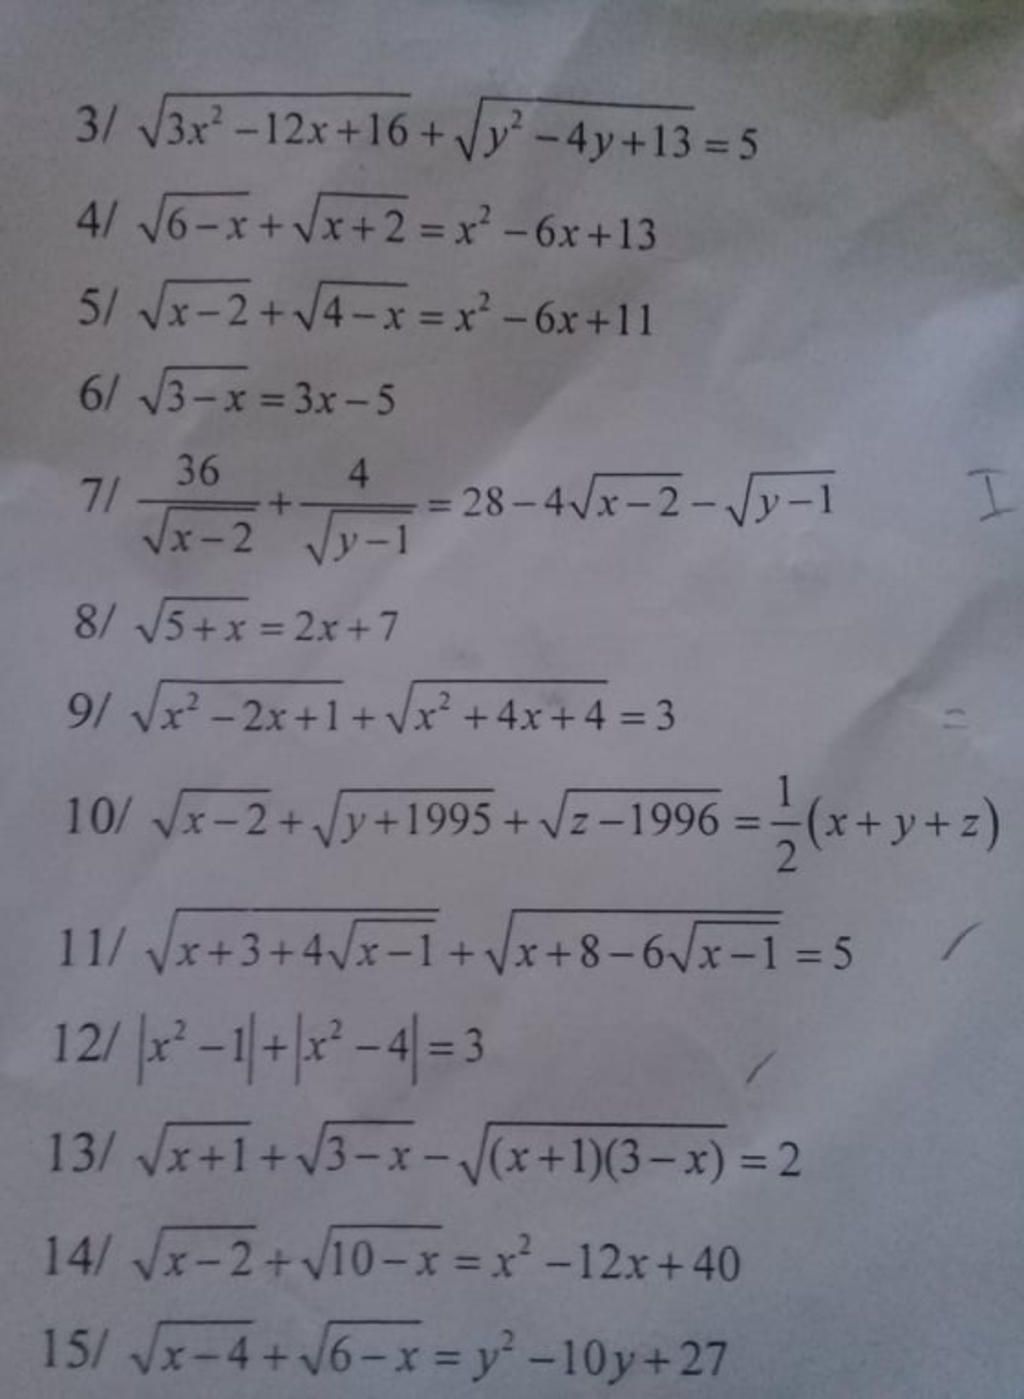 3/ √(3x² − 12x + 16) + √(y² − 4y + 13) = 5
4/ √(6 − x) + √(x + 2) = x² − 6x + 13
5/ √(x − 2) + √(4 − x) = x² − 6x + 11
6/ √(3 − x) = 3x − 5
7/ 36/√(x − 2) + 4/√(y − 1) = 28 − 4√(x − 2) − √(y − 1)
8/ √(5 + x) = 2x + 7
9/ √(x² − 2x + 1) + √(x² + 4x + 4) = 3
10/ √(x − 2) + √(y + 1995) + √(z − 1996) = 1/2 (x + y + z)
11/ √(x + 3 + 4√(x − 1)) + √(x + 8 − 6√(x − 1)) = 5
12/ |x² − 1| + |x² − 4| = 3
13/ √(x + 1) + √(3 − x) − √((x + 1)(3 − x)) = 2
14/ √(x − 2) + √(10 − x) = x² − 12x + 40
15/ √(x − 4) + √(6 − x) = y² − 10y + 27